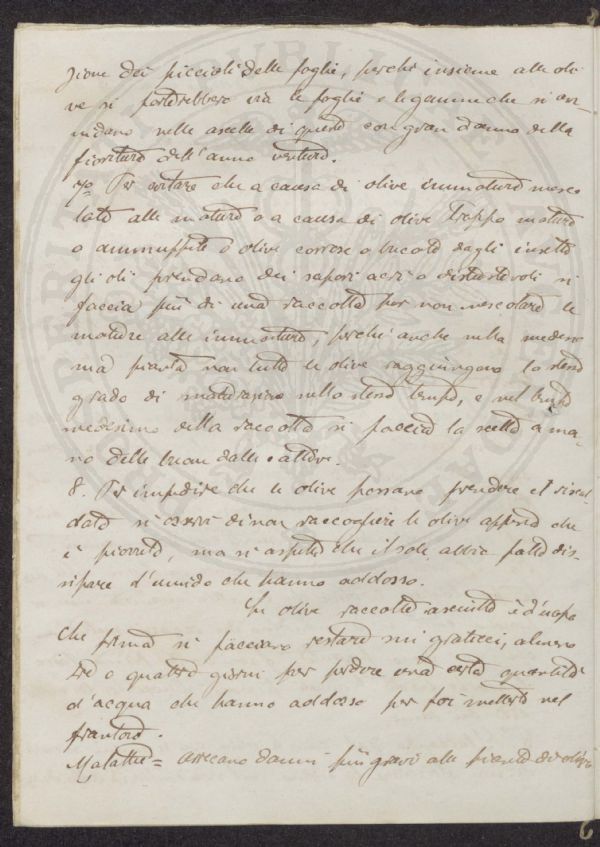 zione dei piccioli delle foglie, perchè insieme alle oli-
ve si porterebbero via le foglie e le gemme che si an-
nidano nelle ascelle di queste con gran danno della
fioritura dell'anno venturo.
7º Per evitare che a causa di olive immature mesco
late alle mature o a causa di olive troppo mature
o ammuffite o olive corrose o bucate dagli insetti
gli oli prendano dei sapori acri o disgustevoli si
faccia più di una raccolta per non mescolare le
mature alle immature, perchè anche nella medesi
ma pianta non tutte le olive raggiungono lo stesso
grado di maturazione nello stesso tempo, e nel tempo
medesimo della raccolta si faccia la scelta a ma
no delle buone dalle cattive.
8. Per impedire che le olive possano prendere il riscal
dato si osservi di non raccogliere le olive appena che
è piovuto, ma si aspetti che il sole abbia fatto dis-
sipare l'umido che hanno addosso.
Le olive raccolte asciutte è d'uopo
che prima si facciano restare sui graticci, almeno
tre o quattro giorni per perdere una certa quantità
d'acqua che hanno addosso per poi metterle nel
frantoio.
Malattie = Arrecano danni più gravi alle piante di olivo